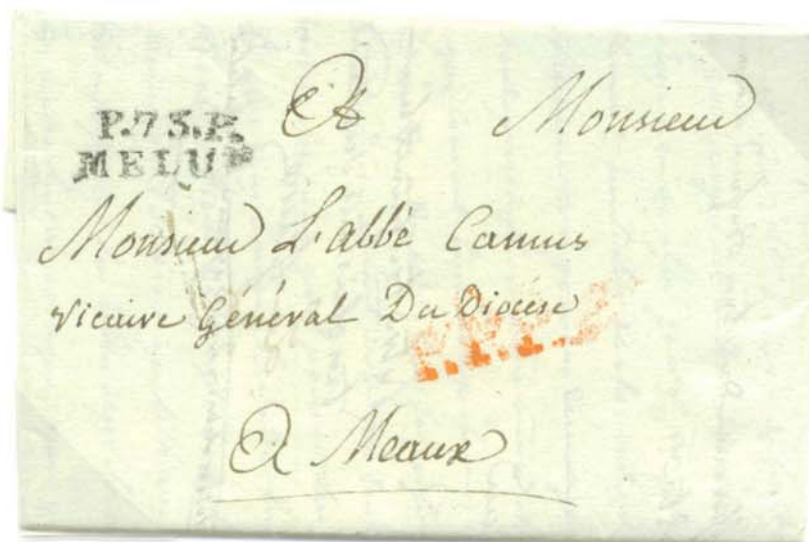 P.73.P.
MELUN
A Monsieur
Monsieur L'abbé Camus
Vicaire Général Du Diocese
P.P.P.P.
A Meaux